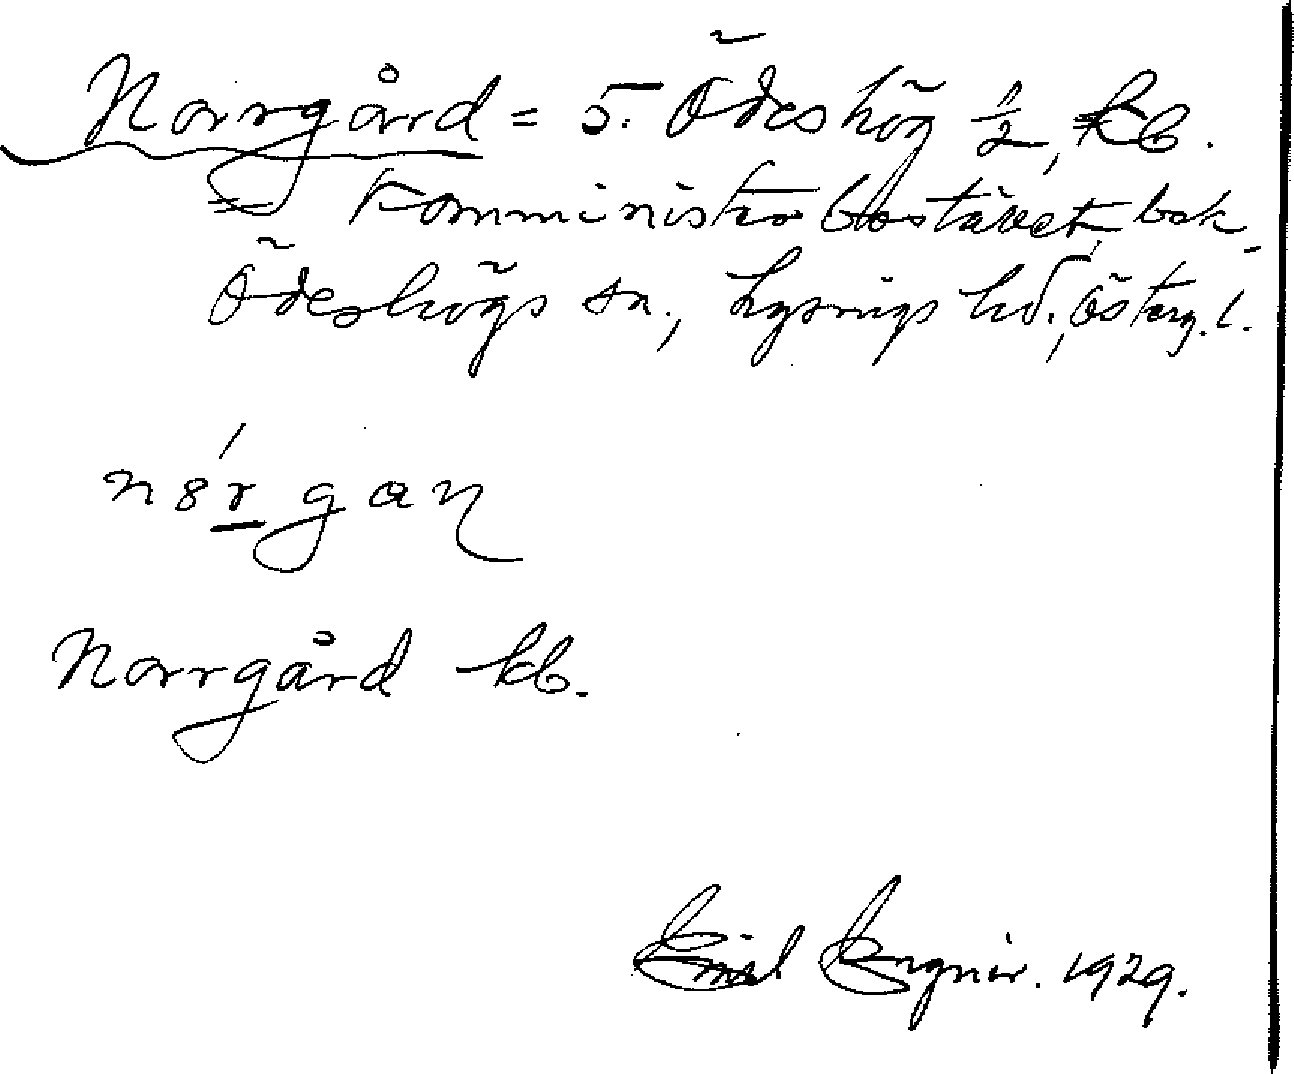 Norrgård = 5. Ödeshög ½, kb.
= Komministrabostället, bok.
Ödeshögs sn., Lysings hd., Österg. l.
n8́r gan
Norrgård kb.
Emil Engnér. 1929.